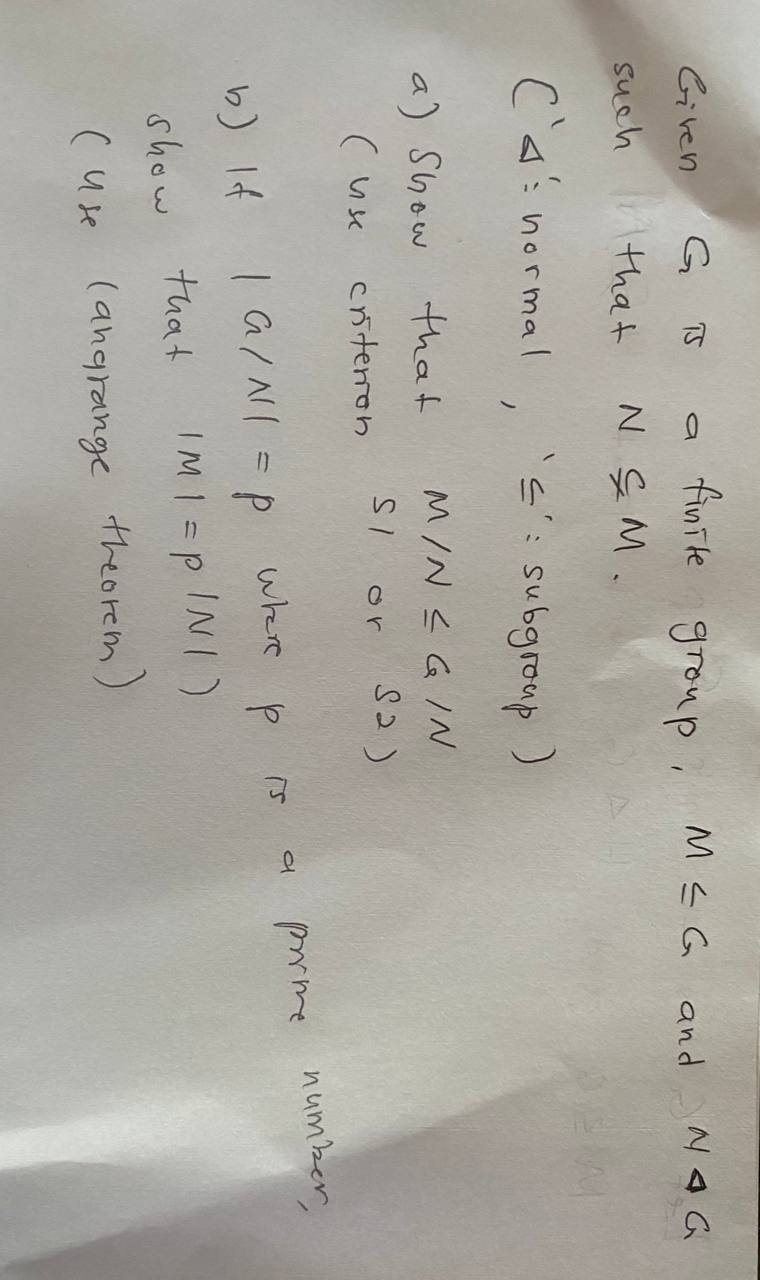 Given G is a finite group, M ≤ G and N ⊲ G
such that N ≨ M.
('⊲': normal, '≤': subgroup)
a) Show that M/N ≤ G/N
(use criterion S1 or S2)
b) If |G/N| = p where p is a prime number,
show that |M| = p|N|)
(use langrange theorem)